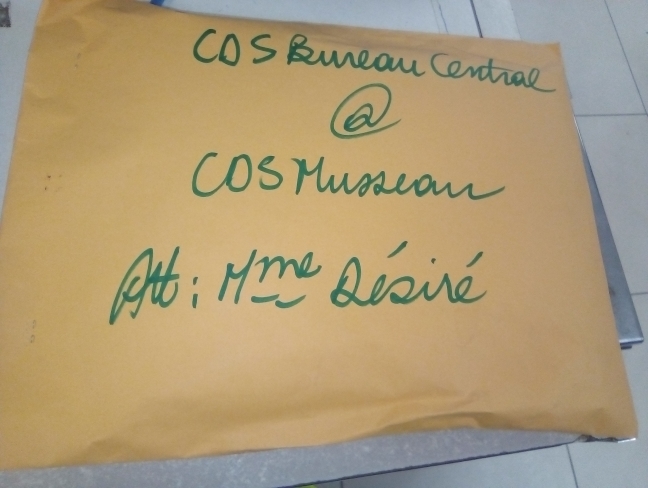 CDS Bureau Central
@
CDS Musseau
Att : Mme Désiré